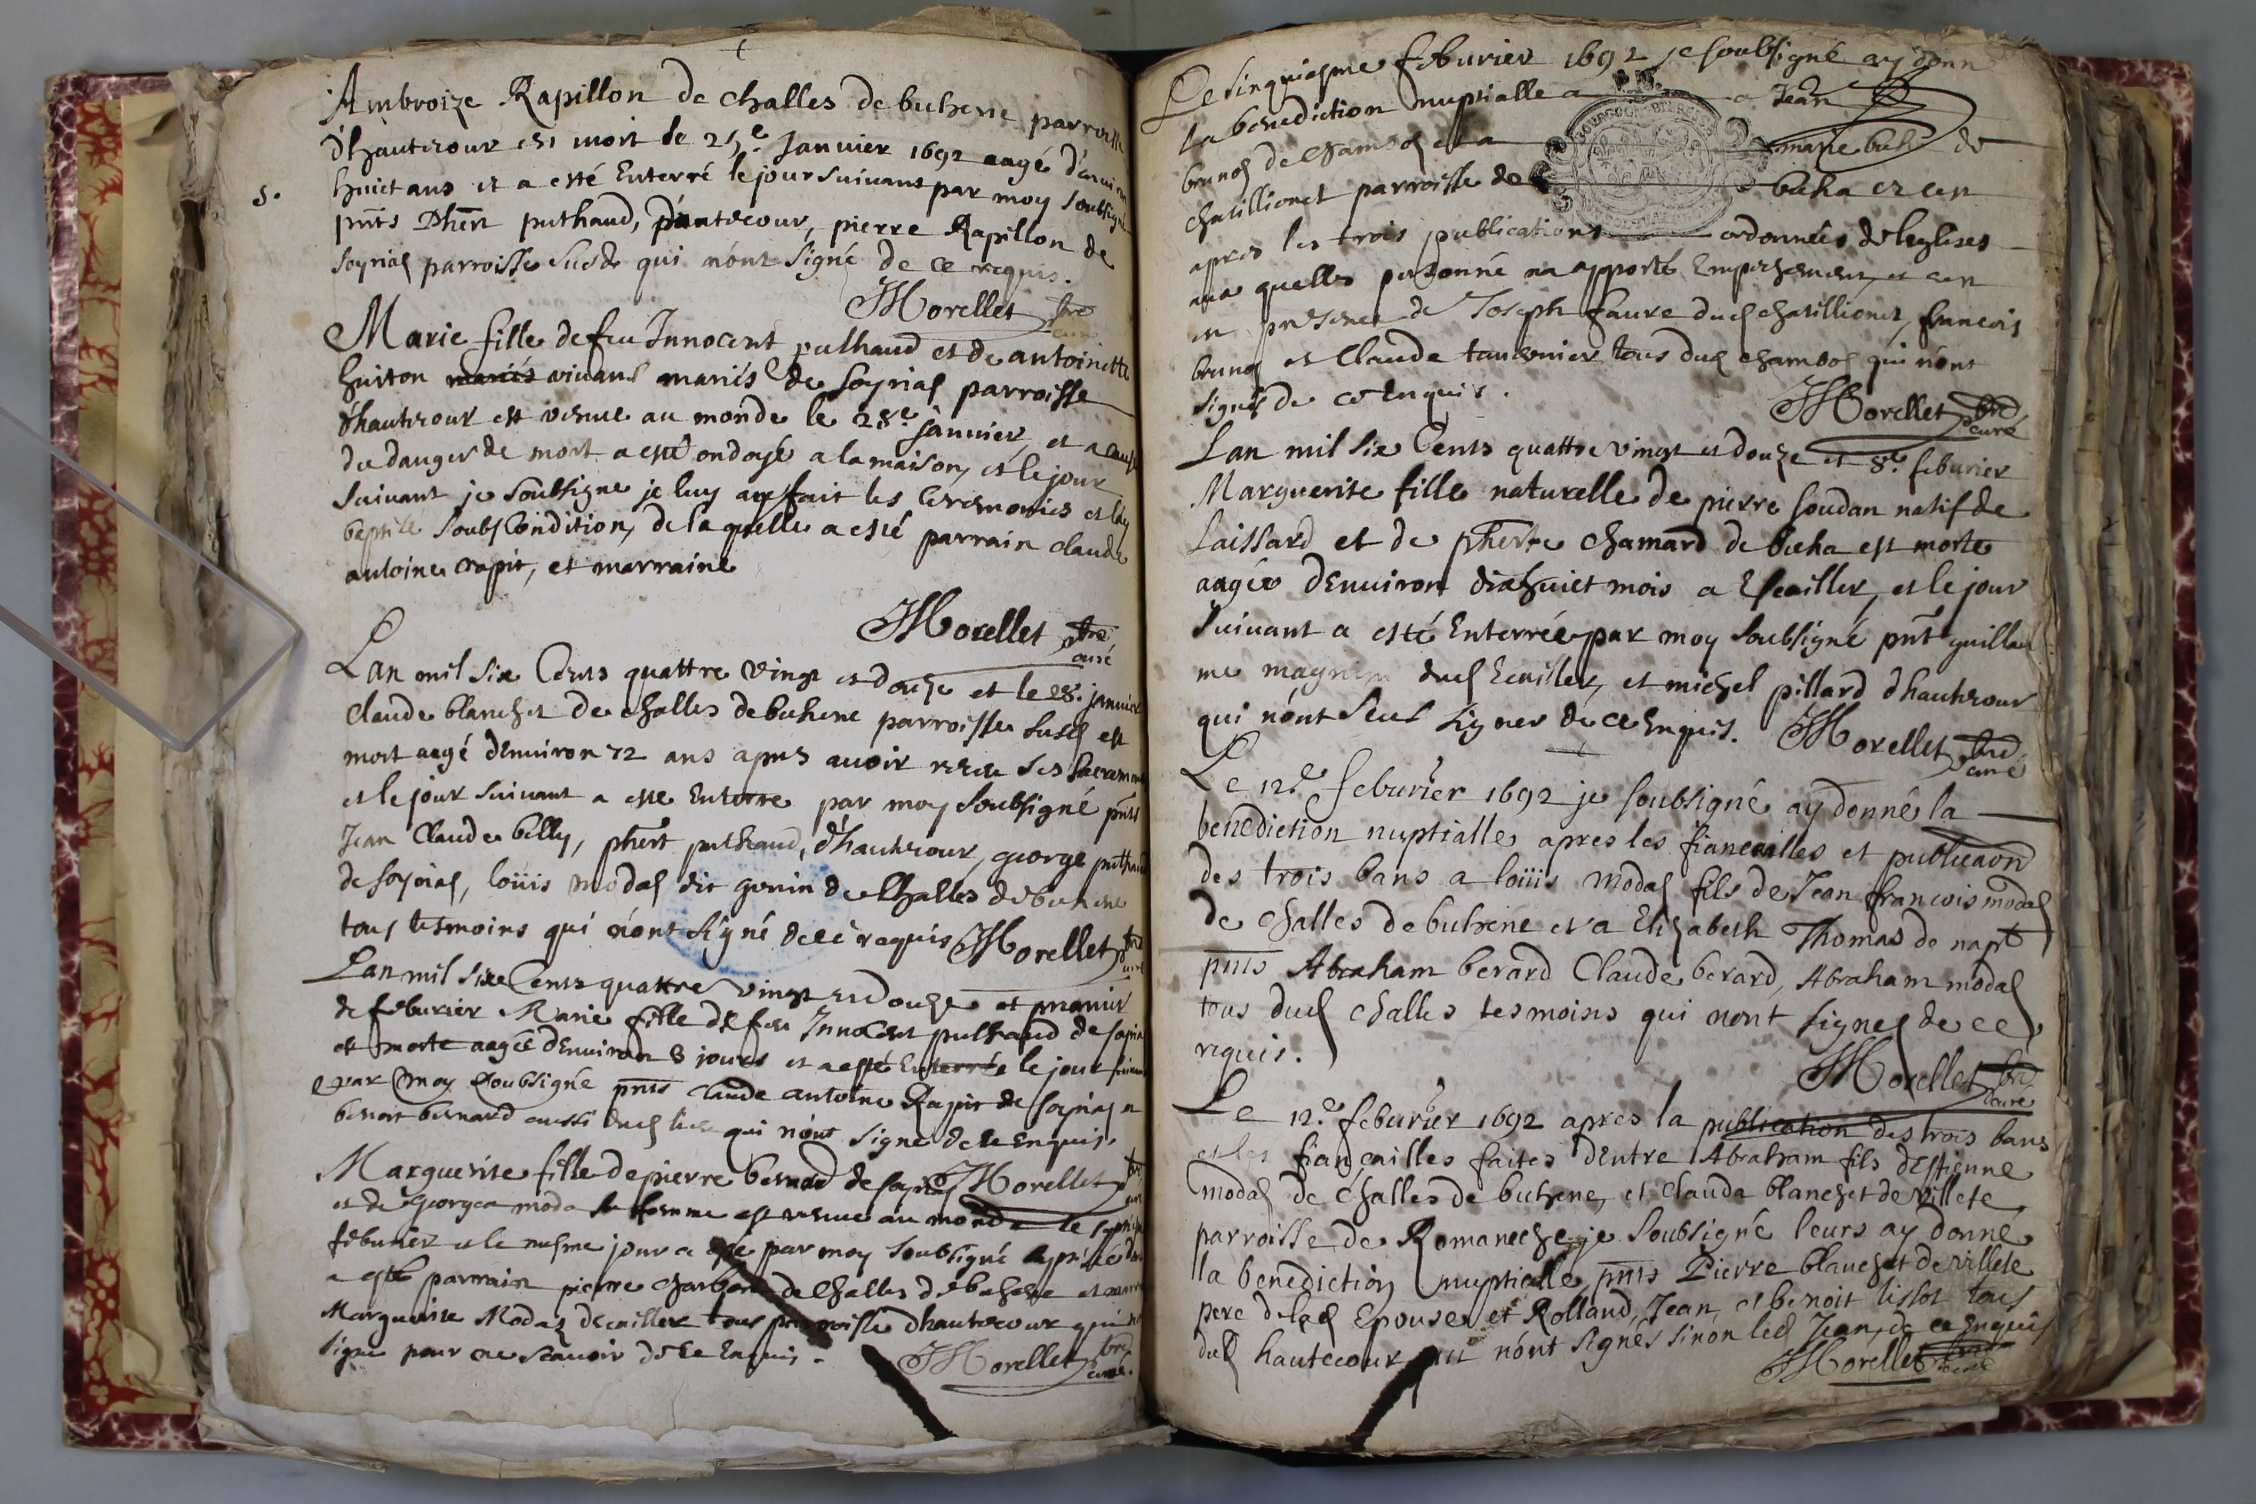 Ambroize Rapillon de challes de buhene parroisse
d'hautecour est mort le 25e Janvier 1692 aagé d'environ
huict ans et a esté Enterré le jour suivant par moy soubsigné
pnts Phert puthaud, d'hautecour, pierre Rapillon de
soyriaq parroisse susde qui n'ont signé de ce requis.
JMorellet pbre curé
5.
Marie fille de feu Innocent puthaud et de antoinette
huiton mariés vivans mariés de soyriaq parroisse
d'hautecour est venue au monde le 28e janvier, et a cause
du danger de mort a esté ondoyé a la maison, et le jour
suivant je soubsigne je luy ay fait les Ceremonies et l'ay
baptisé soubs Condition, de laquelle a esté parrain claude
antoine rapit, et marraine
JMorellet pbre curé
Lan mil six Cents quattre vingt et douze et le 28e janvier
claude blanchet de challes de buhene parroisse susd est
mort aagé d'Environ 72 ans apres avoir receu ses sacremens
et le jour suivant a esté Enterré par moy soubsigné pnts
Jean Claude billy, phert puthaud, d'hautecour, george puthaud
de soyriaq, loüis modaq dit genin de Challes de buhene
tous tesmoins qui n'ont signé de ce requis JMorellet pbre curé
Lan mil six Cents quattre vingt et douze et premier
de feburier Marie fille de feu Innocent puthaud de soyriaq
est morte aagée d'Environ 3 jours et a esté Enterrée le jour suivant
par moy soubsigné pnts claude antoine Rapit de soyriaq et
benoit bernard aussi dud lieu qui n'ont signé de ce Enquis.
JMorellet pbre
Marguerite fille de pierre bernard de soyriaq
et de Georgea moda sa femme est venue au monde le
feburier et le mesme jour a esté par moy soubsigné baptisée
a esté parrain pierre de Challes de buhene et marraine
Marguerite Modaz decuiller tous parroisse d'hautecour qui n'ont
signé pour ne scavoir de ce Enquis.
JMorellet pbre curé.
Le sinquiesme feburier 1692 je soubsigné ay donné
la benediction nuptialle a Jean
brunoq de chamboq et a marie buha de
chatillionet parroisse de buha et ce
apres les trois publications ordonnées de leglises
aux quelles personne na apporté Empechement et ce
en presence de Joseph faure dud chatillionet, francois
brunoq et Claude tauernier tous dud chamboq qui n'ont
signés de ce Enquis.
JMorellet pbre curé
Lan mil six Cents quattre vingt et douze et 8e feburier
Marguerite fille naturelle de pierre soudan natif de
laissard et de pherte chamard de buha est morte
aagée d'Environ dixhuict mois a Ecuiller, et le jour
suivant a esté Enterrée par moy soubsigné pnt guillau
me magnin dud Ecuiller, et michel pillard d'hautecour
qui n'ont sceu signer de ce Enquis. JMorellet pbre curé
Le 12e feburier 1692 je soubsigné ay donné la
benediction nuptialle apres les fiancailles et publicaon
des trois bans a loüis modaq fils de Jean francois modaq
de challes de buhene et a Elizabeth Thomas de napt
pnts Abraham berard Claude berard, Abraham modaq
tous dud challes tesmoins qui n'ont signeq de ce
requis.
JMorellet pbre curé
Le 12e feburier 1692 apres la publication des trois bans
et les fiançailles faites d'Entre Abraham fils d'Estienne
modaq de challes de buhene, et Clauda blanchet de villete
parroisse de Romaneche, je soubsigné leurs ay donné
la benediction nuptialle, pnts Pierre blanchet de villete
pere de lad Epouse, et Rolland, Jean, et benoit lissot tous
dud hautecour qui n'ont signés sinon led Jean, de ce Enquis
JMorellet pbre curé